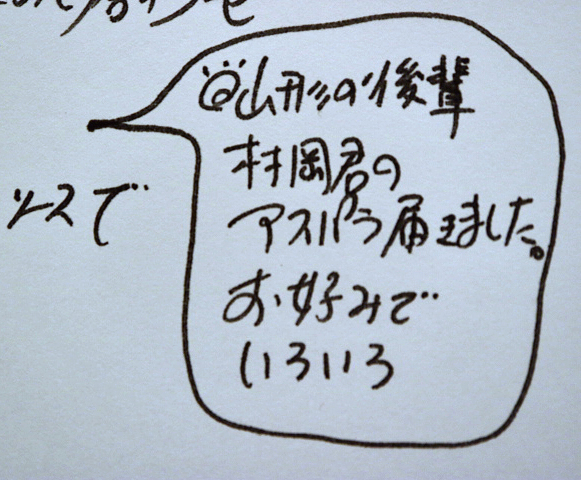 山形の後輩
村岡君の
アスパラ届きました。
お好みで
いろいろ
ソースで